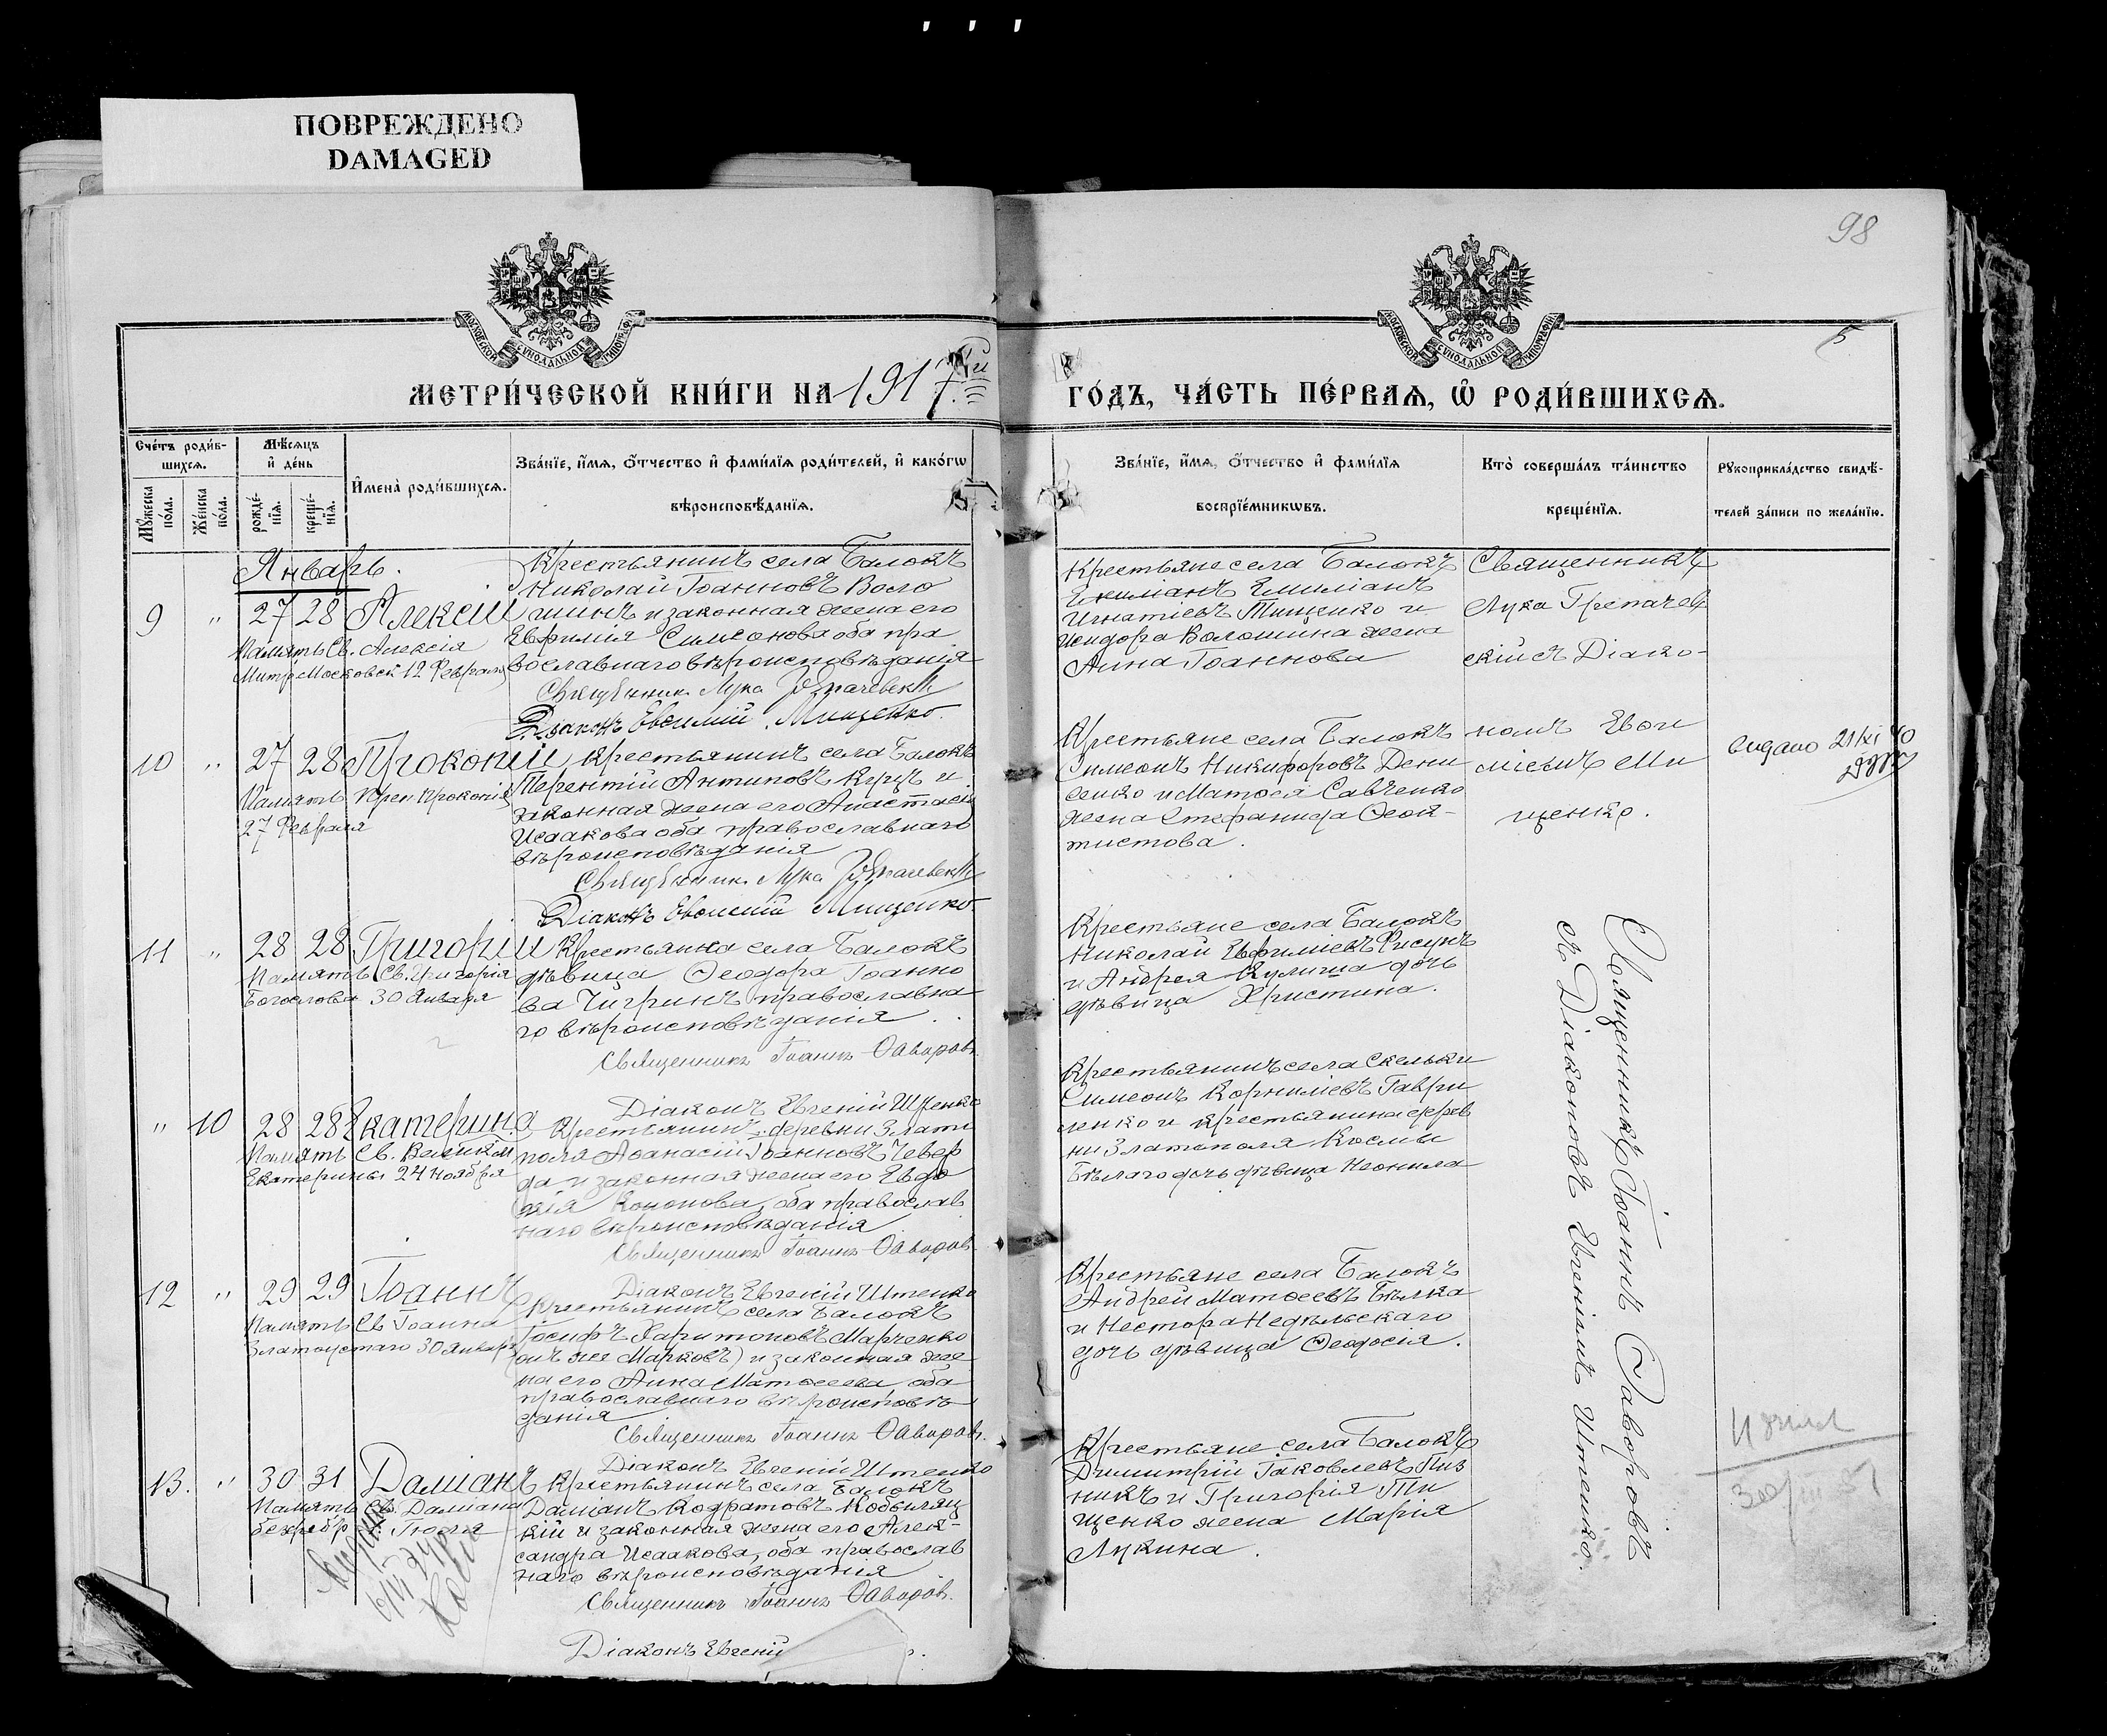 ПОВРЕЖДЕНО
DAMAGED
98
5
МОСКОВСКОЙ СѴНОДАЛЬНОЙ ТИПОГРАФІИ
МОСКОВСКОЙ СѴНОДАЛЬНОЙ ТИПОГРАФІИ
МЕТРИ́ЧЕСКОЙ КНИ́ГИ НА 1917
ГО́ДЪ, ЧА́СТЬ ПЕ́РВАѦ, Ѡ҆ РОДИ́ВШИХСѦ.
Сче́тъ роди́в-
шихсѧ.
Мꙋ́жеска по́ла.
Же́нска по́ла.
Мѣ́сѧцъ
и҆ де́нь
рожде́-
нїѧ.
креще́-
нїѧ.
И҆мена̀ роди́вшихсѧ.
Зва́нїе, и҆́мѧ, ѻ҆́тчество и҆ фами́лїѧ роди́телей, и҆ како́гѡ
вѣроисповѣ́данїѧ.
Зва́нїе, и҆́мѧ, ѻ҆́тчество и҆ фами́лїѧ
воспрїе́мникѡвъ.
Кто̀ соверша́лъ та́инство
креще́нїѧ.
Рꙋкоприкла́дство свидѣ́-
телей за́писи по жела́нїю.
Январь.
9 " 27 28 Алексій
Память Св. Алексія
Митр. Московск 12 Февраля
Крестьянинъ села Балокъ
Николай Іоанновъ Воло
шинъ и законная жена его
Евфимія Симеонова оба пра
вославнаго вѣроисповѣданія
Священник Лука Грепачевскій
Діаконъ Евфимій Мищенко.
Крестьяне села Балокъ
Емиліанъ
Игнатіевъ Тищенко и
Исидора Волошина жена
Анна Іоаннова
Священникъ
Лука Грепачев
скій съ Діако-
номъ Евѳи
міемъ Ми
щенко.
10 " 27 28 Прокопій
Память Преп Прокопія
27 Февраля
Крестьянинъ села Балокъ
Терентій Антиповъ Куцъ и
законная жена его Анастасія
Исаакова оба православнаго
вѣроисповѣданія
Священник Лука Грепачевскій
Діаконъ Евѳимій Мищенко.
Крестьяне села Балокъ
Симеонъ Никифоровъ Дени
сенко и Матѳея Савченко
жена Стефанида Ѳеок-
тистова.
видано 21/XI 40
11 " 28 28 Григорій
Память Св. Григорія
Богослова 30 Января
Крестьянка села Балокъ
дѣвица Ѳеодора Іоанно
ва Чигринъ православна
го вѣроисповѣданія.
Священникъ Іоаннъ Ѳаворовъ.
Діаконъ Евгеній Итенко
Крестьяне села Балокъ
Николай Евфиміевъ Фисунъ
и Андрея Кулиша дочь
дѣвица Христина.
Священникъ Іоаннъ Ѳаворовъ
съ Діакономъ Евгеніемъ Итенко.
" 10 28 28 Екатерина
Память Св. Великом
Екатерины 24 Ноября
Крестьянинъ деревни Злато
поля Аѳанасій Іоанновъ Чевер
да и законная жена его Евдо
кія Кононова, оба православ
наго вѣроисповѣданія
Священникъ Іоаннъ Ѳаворовъ.
Діаконъ Евгеній Итенко
Крестьянинъ села Скельки
Симеонъ Корниліевъ Гаври
ленко и крестьянина дерев
ни Златополя Космы
Бѣлаго дочь дѣвица Неонила
12 " 29 29 Іоаннъ
Память Св Іоанна
Златоустаго 30 Января
Крестьянинъ села Балокъ
Іосифъ Харитоновъ Марченко
(онъ же Марковъ) и законная же
на его Анна Матѳеева оба
православнаго вѣроисповѣ
данія
Священникъ Іоаннъ Ѳаворовъ.
Діаконъ Евгеній Итенко
Крестьяне села Балокъ
Андрей Матѳеевъ Бѣлка
и Нестора Недѣльскаго
дочь дѣвица Ѳеодосія.
13. " 30 31 Даміанъ
Память Св. Даміана
безсребр 1 Іюля
Крестьянинъ села Балокъ
Даміанъ Кодратовъ Кобыляц
кій и законная жена его Алек-
сандра Исаакова, оба православ
наго вѣроисповѣданія
Священникъ Іоаннъ Ѳаворовъ.
Діаконъ Евгеній
Крестьяне села Балокъ
Димитрій Іаковлевъ Пив
никъ и Григорія Ти
щенко жена Марія
Лукина.